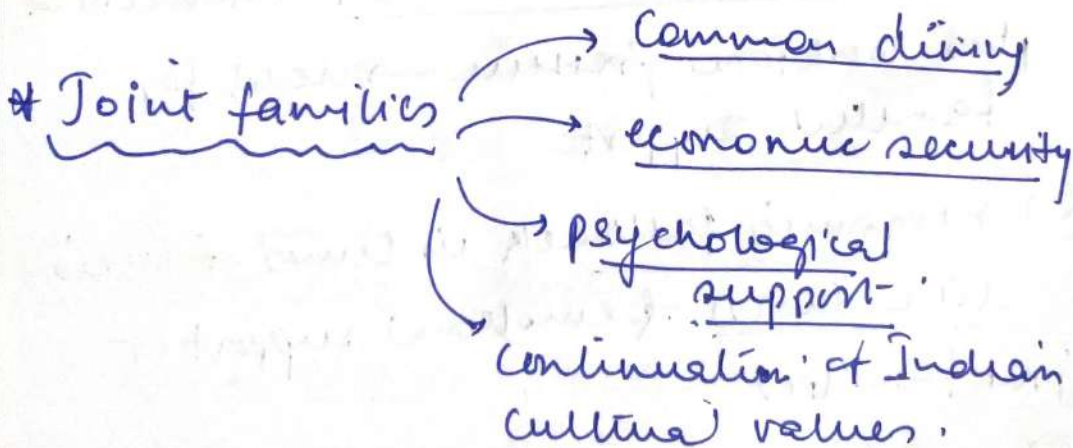 * Joint families
Common dining
economic security
psychological
support
Continuation of Indian
Cultural values.